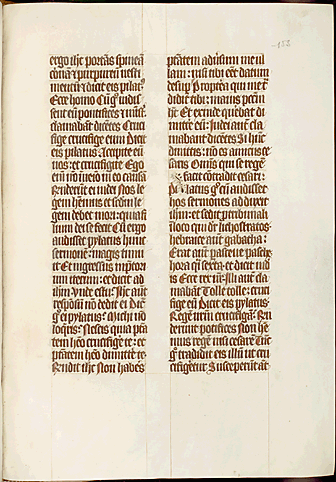 ergo ihc portās spineā
coronā et purpureū vesti
mentū et dicit eis pilat9
Ecce homo Cūq3 vidis
sent eū pontifices et minist'
clamabāt dicētes Cruci
fige crucifige eum Dicit
eis pilatus Accipite eū
vos: et crucifigite Ego
eī nō īvenio in eo causā
Rūderūt ei iudei Nos le
gem hēmus et scdm le
gem debet mori: quia fi
lium dei se fecit Cū ergo
audisset pylatus hunc
sermonē: magis timu
it Et ingressus in ptori
um iterum: et dicit ad
ihm Unde es tu: Ihc autē
responsū nō dedit ei Dic̄
gͦ ei pylatus: Michi nō
loq̄ris: Nescis quia ptā
tem hēo crucifige te: et
ptātem hēo dimitte te
Rūdit ihc Non habēs
152
ptātem advsum me ul
lam: nisi tibi eēt datum
desup Proptea qui me t
didit tibi: maius pccm
ht Et exinde querebat di
mitte eū: Iudei autē cla
mabant dicētes Si hūc
dimittis: nō es amic9 ce
saris Omis qui se regē
facit cōtradic̄ cesari:
Pylatus gͦ cū audisset
hos sermones adduxit
ihm: et sedit p tribunali
loco qui dr lichostratos
hebraice autē gabatha:
Erat autē pasceve pasche
hora qͣ sexta: et dicit iud
is Ecce rex vr̄: Illi autē cla
mabāt Tolle tolle: cruci
fige eū Dicit eis pylatus
Regē vrm crucifigā: Rū
derunt pōtifices Non hē
mus regē nisi cesarē Tūc
gͦ tradidit eis illū ut cru
cifigeret Susceperūt āt